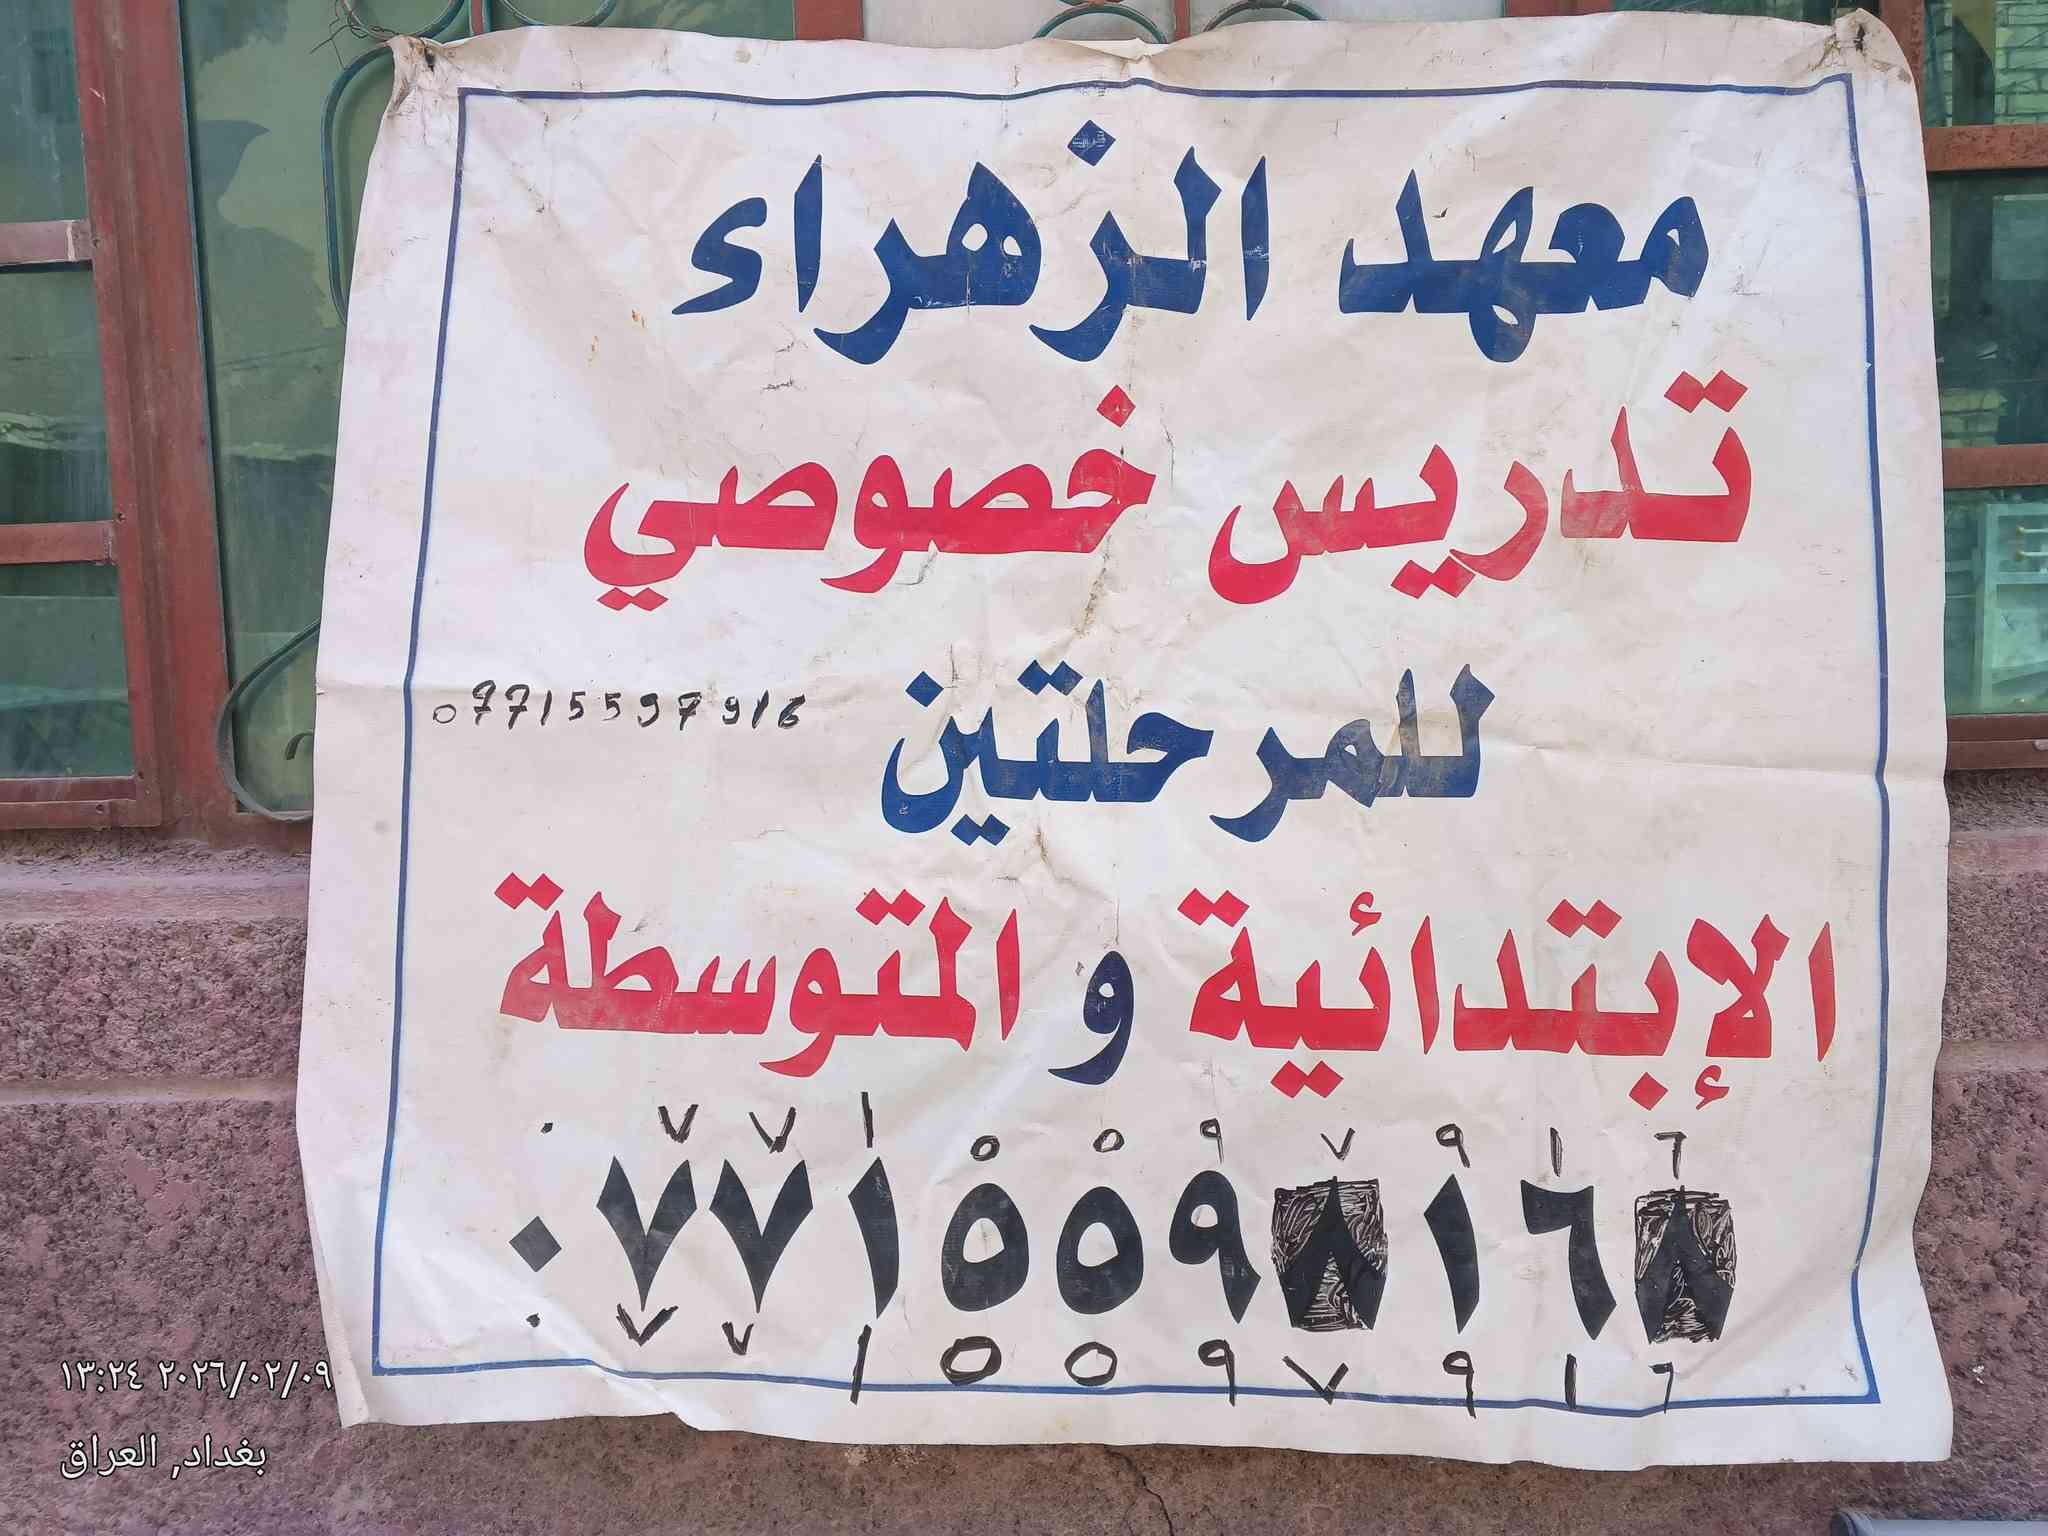 معهد الزهراء
تدريس خصوصي
للمرحلتين
07715597916
الإبتدائية و المتوسطة
٠٧٧١٥٥٩٧٩١٦
٠٧٧١٥٥٩٨١٦٨
٠٧٧١٥٥٩٧٩١٦
٢٠٢٦/٠٢/٠٩ ١٣:٢٤
بغداد, العراق